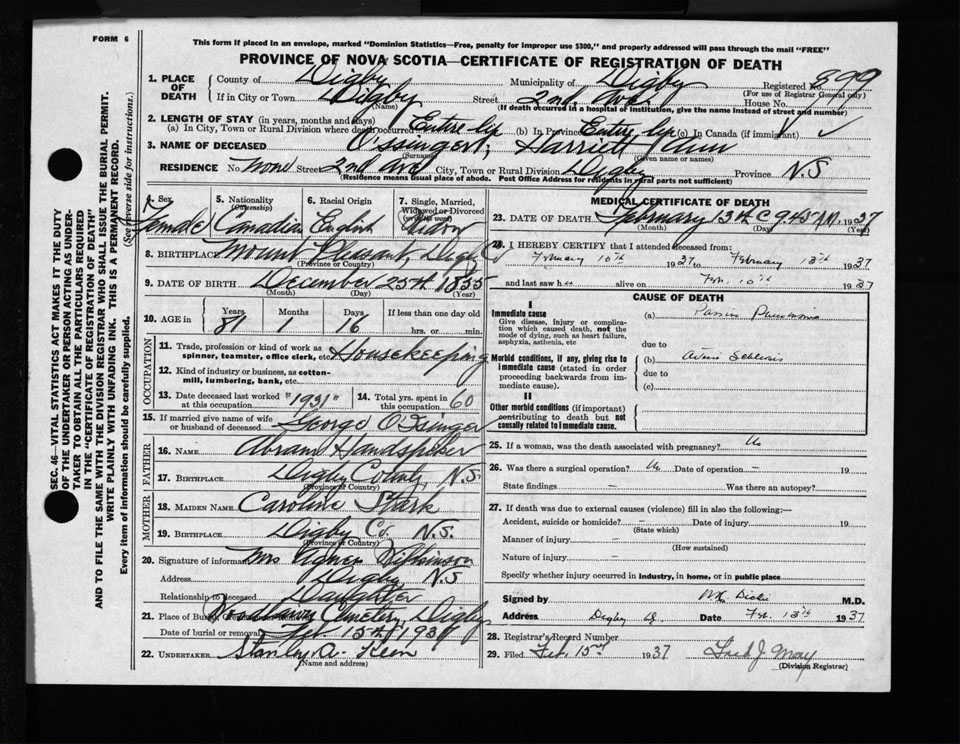 FORM 6
This form if placed in an envelope, marked "Dominion Statistics—Free, penalty for improper use $300," and properly addressed will pass through the mail "FREE"
PROVINCE OF NOVA SCOTIA—CERTIFICATE OF REGISTRATION OF DEATH
1. PLACE OF DEATH
County of Digby Municipality of Digby Registered No. 899
(For use of Registrar General only)
If in City or Town Digby Street 2nd Ave House No.
(Name) (If death occurred in a hospital of institution, give the name instead of street and number)
2. LENGTH OF STAY (in years, months and days)
(a) In City, Town or Rural Division where death occurred Entire life (b) In Province Entire life (c) In Canada (if immigrant)
3. NAME OF DECEASED Ossinger, Harriett Ann
(Surname) (Given name or names)
RESIDENCE No. None Street 2nd Ave City, Town or Rural Division Digby Province N.S
(Residence means usual place of abode. Post Office Address for residents in rural parts not sufficient)
4. Sex Female
5. Nationality (Citizenship) Canadian
6. Racial Origin English
7. Single, Married, Widowed or Divorced Widow
8. BIRTHPLACE Mount Pleasant, Digby Co
(Province or Country)
9. DATE OF BIRTH December 25th 1855
(Month) (Day) (Year)
10. AGE in Years 81 Months 1 Days 16 If less than one day old
hrs. or min.
OCCUPATION
11. Trade, profession or kind of work as spinner, teamster, office clerk, etc. Housekeeping
12. Kind of industry or business, as cotton-mill, lumbering, bank, etc.
13. Date deceased last worked at this occupation "1931"
14. Total yrs. spent in this occupation 60
15. If married give name of wife or husband of deceased George Ossinger
FATHER
16. NAME Abram Handspiker
17. BIRTHPLACE Digby County, N.S
(Province or Country)
MOTHER
18. MAIDEN NAME Caroline Stark
19. BIRTHPLACE Digby Co. N.S.
(Province or Country)
20. Signature of informant Mrs
Address Digby N.S
Relationship to deceased Daughter
21. Place of Burial, Woodlawn Cemetery, Digby
Date of burial or removal Feb. 15th 1937
22. UNDERTAKER Stanley A.
(Name and address)
MEDICAL CERTIFICATE OF DEATH
23. DATE OF DEATH February 13th 9.45 1937
(Month) (Day) (Year)
24. I HEREBY CERTIFY that I attended deceased from:
February 10th 1937 to February 13th 1937
and last saw her alive on Feb. 10th 1937
CAUSE OF DEATH
I
Immediate cause
Give disease, injury or complication which caused death, not the mode of dying, such as heart failure, asphyxia, asthenia, etc
(a) Pneumonia
due to
Morbid conditions, if any, giving rise to immediate cause (stated in order proceeding backwards from immediate cause).
(b)
due to
(c)
II
Other morbid conditions (if important) contributing to death but not causally related to immediate cause.
25. If a woman, was the death associated with pregnancy? No
26. Was there a surgical operation? No Date of operation — 19
State findings — Was there an autopsy?
27. If death was due to external causes (violence) fill in also the following:—
Accident, suicide or homicide? — Date of injury 19
(State which)
Manner of injury —
(How sustained)
Nature of injury
Specify whether injury occurred in industry, in home, or in public place
Signed by Dickie M.D.
Address Digby Date Feb. 13th 1937
28. Registrar's Record Number
29. Filed Feb. 15 1937 Fred J.
(Division Registrar)
SEC. 46—VITAL STATISTICS ACT MAKES IT THE DUTY
OF THE UNDERTAKER OR PERSON ACTING AS UNDER-
TAKER TO OBTAIN ALL THE PARTICULARS REQUIRED
IN THE "CERTIFICATE OF REGISTRATION OF DEATH"
AND TO FILE THE SAME WITH THE DIVISION REGISTRAR WHO SHALL ISSUE THE BURIAL PERMIT.
WRITE PLAINLY WITH UNFADING INK. THIS IS A PERMANENT RECORD.
Every item of information should be carefully supplied. (See reverse side for instructions.)